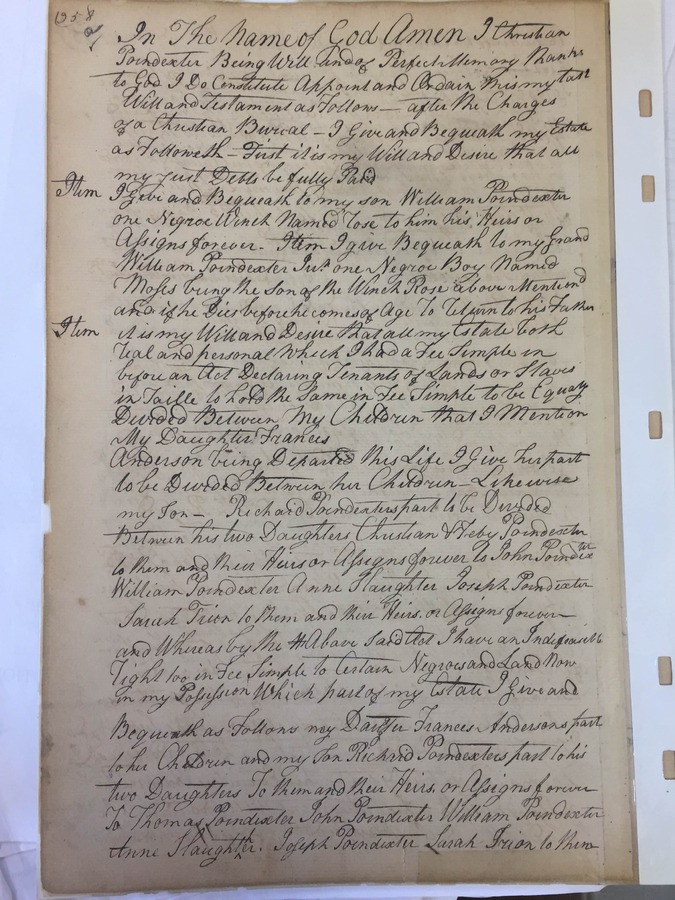 1958
In The Name of God Amen I Christian
Poindexter Being Will and of Perfect Memory thanks
to God I Do Constitute Appoint and Ordain this my last
Will and Testament as Follows — after the Charges
of a Christian Burical — I Give and Bequeath my Estate
as Followeth — First it is my Will and Desire that all
my just Debts be fully Paid
Itim I Give and Bequeath to my son William Poindexter
one Negroe Winch Named Rose to him his Heirs or
Assigns forever. Itim I give Bequeath to my Grand
William Poindexter Junr one Negroe Boy Named
Moses being the Son of the Winch Rose above Mentiond
and if he Dies before he comes of Age to Return to his Father
Itim it is my Will and Desire that all my Estate both
Real and personal Which I had a Fee Simple in
before an Act Declaring Tenants of Lands or Slaves
in Taille to hold the Same in Fee Simple to be Equaly
Divided Between My Children that I Mention
My Daughter Frances
Anderson being Departed this Life I Give her part
to be Divided Between her Children — Likewise
my Son — Richard Poindexters part to be Divided
Between his two Daughters Christian & Feby Poindexter
to them and their Heirs or Assigns forever to John Poindexter
William Poindexter Anne Slaughter Joseph Poindexter
Sarah Trion to them and their Heirs. or Assigns forever
and Whereas by the Above Said Act I have an Indefeasible
Right too in Fee Simple to Certain Negroes and Land Now
in my Possession Which part of my Estate I Give and
Bequeath as Follows my Daughter Frances Andersons part
to her Children and my Son Richard Poindexters part to his
two Daughters To them and their Heirs. or Assigns forever
To Thomas Poindexter John Poindexter William Poindexter
Anne Slaughter. Joseph Poindexter Sarah Trion to them